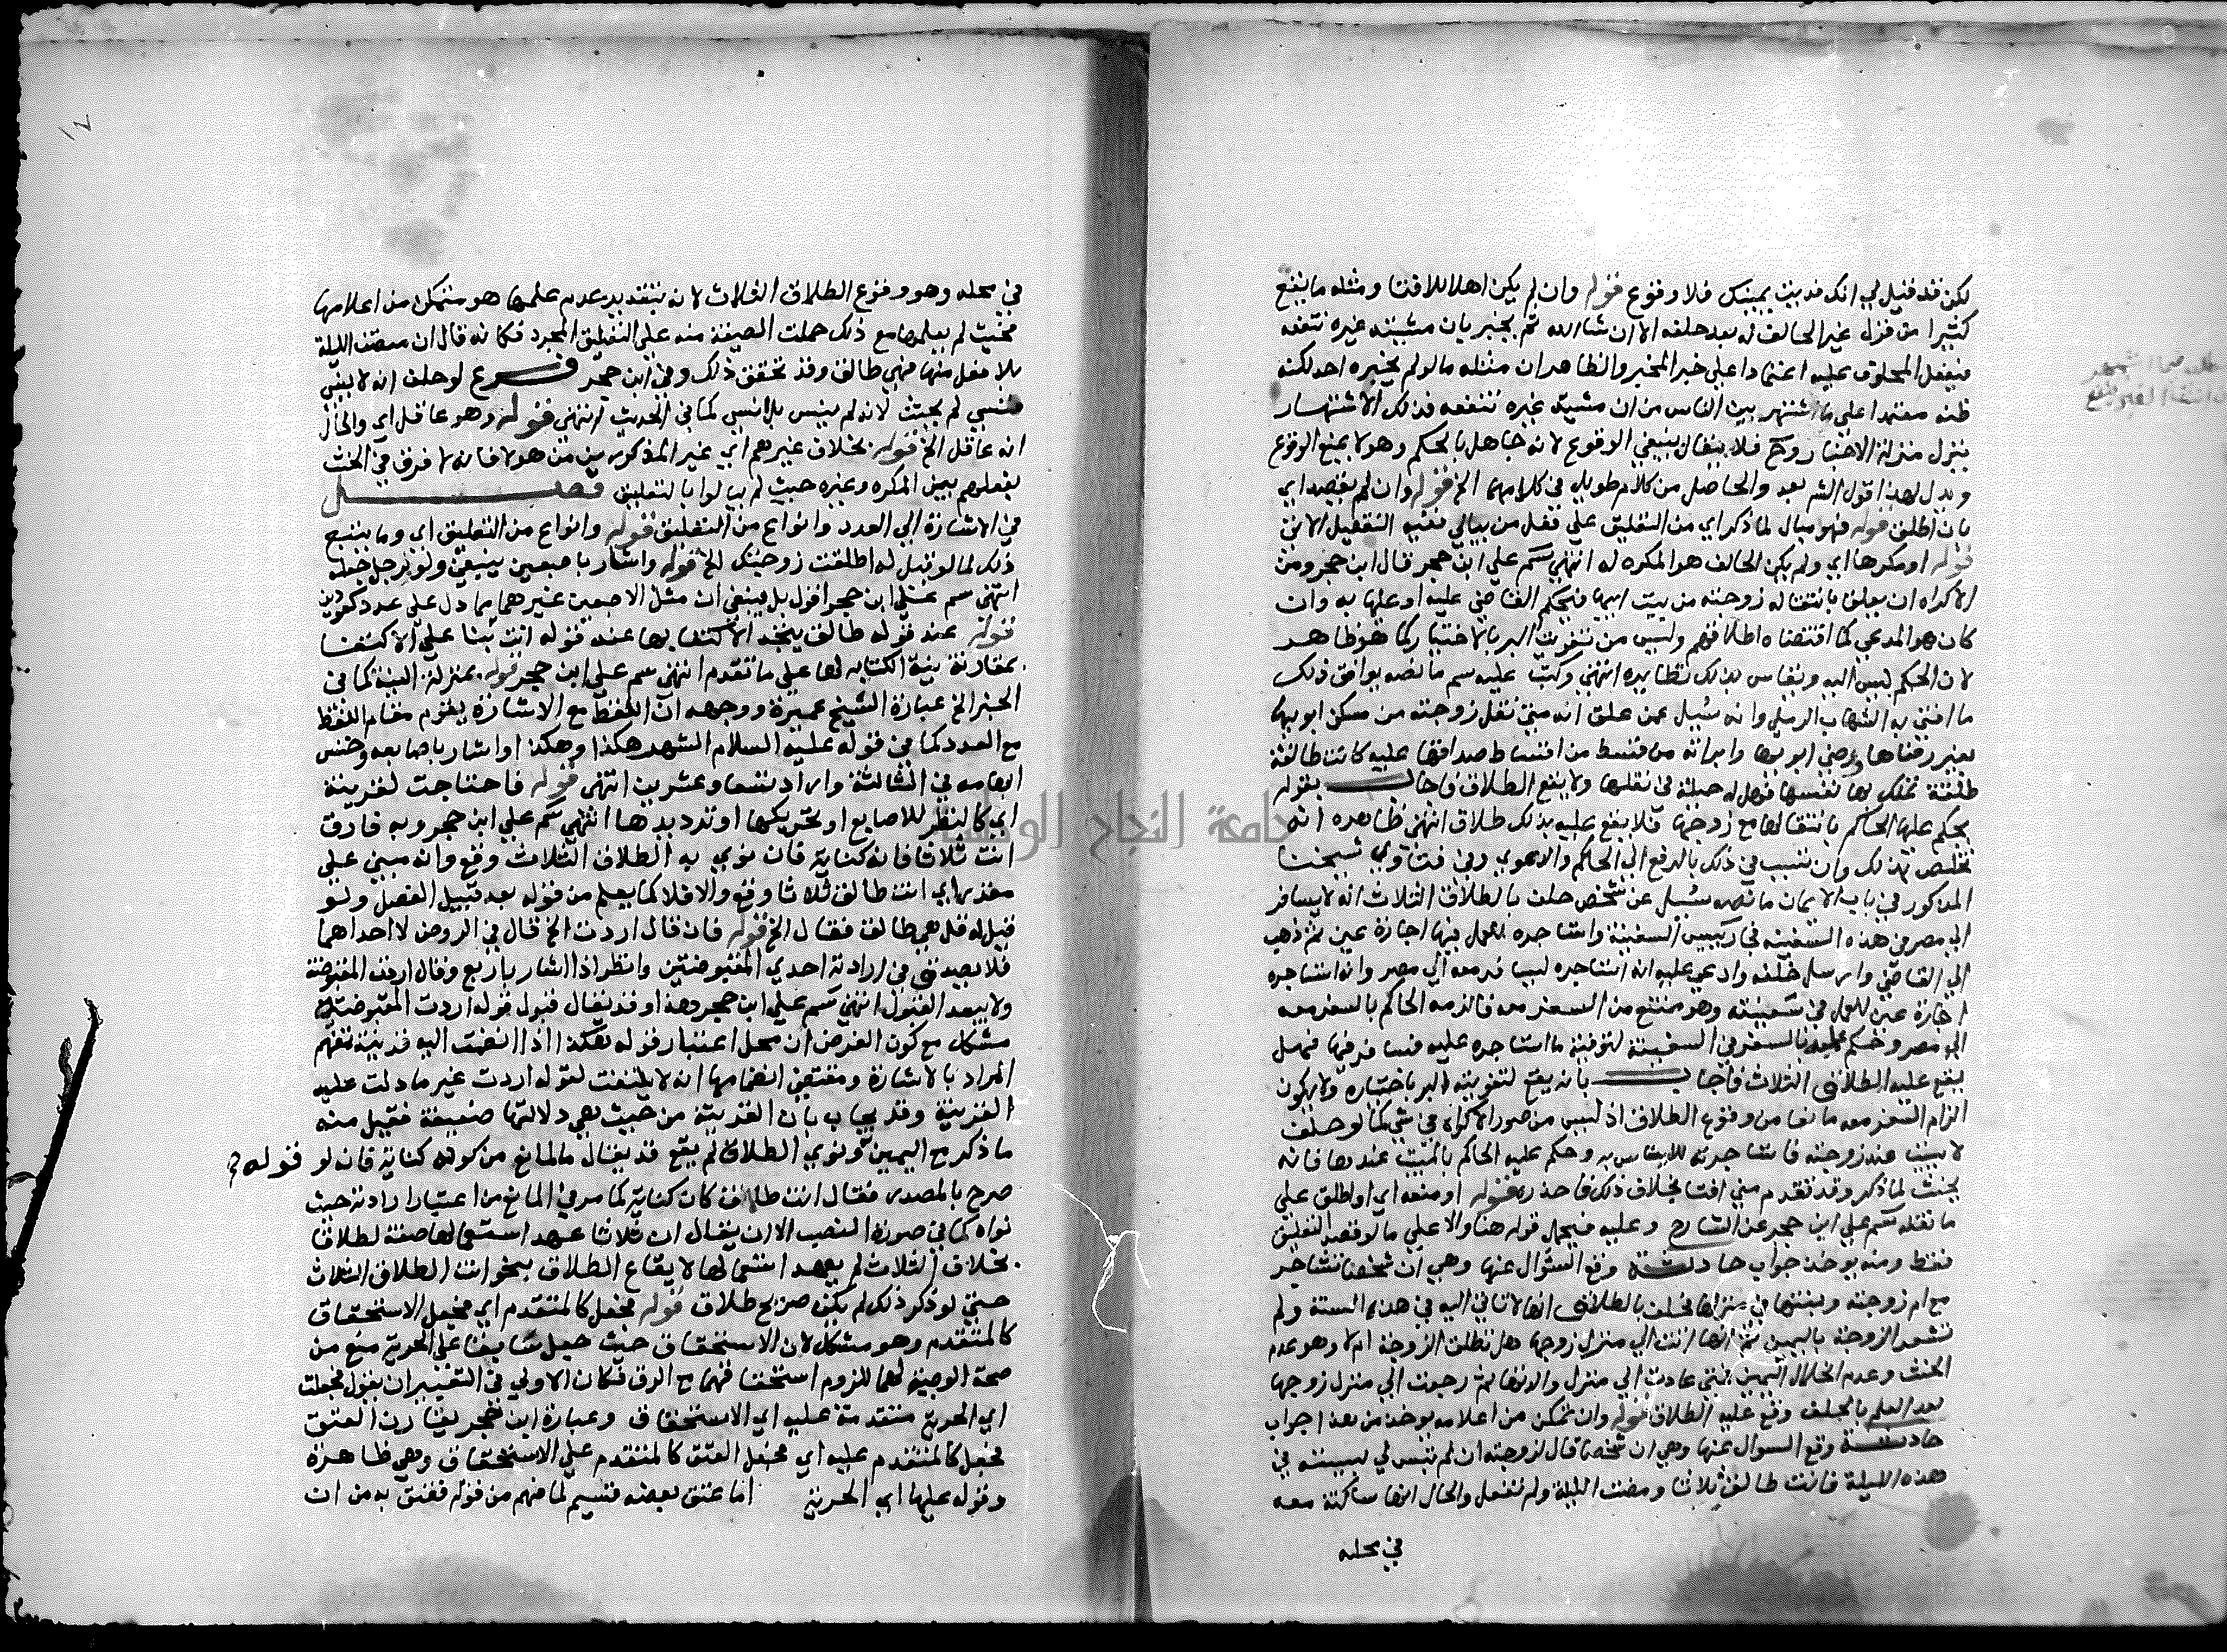 لكن قد قيل لي انك قد بنت بمينك فلا وقوع قوله وان لم يكن اهلا للافتا ومثله ما يقع
كثيرا من قول غير الحالف له بعد حلفه الا ان شا الله ثم يخبر بان مشيئته غيره تنفعه
فيفعل المحلوف عليه اعتمادا على خبر المخبر والظاهر ان مثله ما لو لم يخبره احد لكنه
ظنه معتمدا على ما اشتهر بين الناس من ان مشيئة غيره تنفعه فذلك الاشتهار
ينزل منزلة الاخبار وح فلا يقال ينبغي الوقوع لانه جاهل بالحكم وهو لا يمنع الوقوع
ويدل لهذا قول الشم بعد والحاصل من كلام طويل في كلامهما الخ قوله وان لم يقصد اي
بان اطلق قوله فهو مبال لما ذكر اي من التعليق على فعل من يبالي ففيه التفصيل الاتي
قوله او مكرها اي ولم يكن الحالف هو المكره له انتهى سم على ابن حجر قال ابن حجر ومن
الاكراه ان يعلق بانتقاله زوجته من بيت ابيها فيحكم القاضي عليه او عليها به وان
كان هو المدعي كما اقتضاه اطلاقهم وليس من تفويت البر بالاختيار كما هو ظاهر
لان الحكم ليس اليه ويقاس بذلك نظايره انتهى وكتب عليه سم ما نصه يوافق ذلك
ما افتى به الشهاب الرملي وانه سئيل عمن علق انه متى نقل زوجته من مسكن ابويها
بغير رضاها ورضى ابويها وابراته من قسط من اقساط صداقها عليه كانت طالقة
طلقة تملك بها نفسها فهل له حيلة في نقلها ولا يقع الطلاق فاجاب بقوله
يحكم عليها الحاكم بانتقالها مع زوجها فلا يقع عليه بذلك طلاق انتهى ظاهره انه
تخلص بذلك وان تسبب في ذلك بالرفع الى الحاكم والدعوي وفي فتاوي شيخنا
المذكور في باب الايمان ما نصه سئيل عن شخص حلف بالطلاق الثلاث انه لا يسافر
الى مصر في هذه السفينة فجا رييس السفينة واستاجره للعمل فيها اجارة عين ثم ذهب
الى القاضي وارسل خلفه وادعي عليه انه استاجره ليسافر معه الى مصر وانه استاجره
اجارة عين للعمل في سفينته وهو ممتنع من السفر معه فالزمه الحاكم بالسفر معه
الى مصر وحكم عليه بالسفر في السفينة لتوفية ما استاجره عليه فسافر فيها فهل
يقع عليه الطلاق الثلاث فاجاب بانه يقع لتفويته البر باختياره ولا يكون
الزام السفر معه مانعا من وقوع الطلاق اذ ليس من صور الاكراه في شي كما لو حلف
لا يبيت عند زوجته فاستاجرته للايناس به وحكم عليه الحاكم بالمبيت عندها فانه
يحنث لما ذكر وقد تقدم مني افتا بخلاف ذلك فاحذره قوله او منعه اي او اطلق على
ما نقله سم على ابن حجر عن الشارح وعليه فيحمل قوله هنا والا على ما لو قصد التعليق
فقط ومنه يوخذ جواب حادثة وقع السؤال عنها وهي ان شخصا تشاجر
مع ام زوجته وبنتها في منزلها فحلف بالطلاق انها لا تاتي اليه في هذه السنة ولم
تشعر الزوجة باليمين ثم انها اتت الى منزل زوجها هل تطلق الزوجة ام لا وهو عدم
الحنث وعدم انحلال اليمين فمتى عادت الى منزل والدتها ثم رجعت الى منزل زوجها
بعد العلم بالحلف وقع عليه الطلاق قوله وان تمكن من اعلامه يوخذ من هذا جواب
حادثة وقع السوال عنها وهي ان شخصا قال لزوجته ان لم تبس لي لبيسه في
هذه الليلة فانت طالق ثلاثا ومضت الليلة ولم تفعل والحال انها ساكتة معه
في محله
في محله وهو وقوع الطلاق الثلاث لانه بتقدير عدم علمها هو متمكن من اعلامها
فحيث لم يعلمها مع ذلك حملت الصيغة منه على التعليق المجرد فكانه قال ان مضت الليلة
بلا فعل منها فهي طالق وقد تحقق ذلك وفي ابن حجر فرع لو حلف انه لا ينسى
فنسي لم يحنث لانه لم ينس بل انسي كما في الحديث انتهى قوله وهو عاقل اي والحال
انه عاقل الخ قوله بخلاف غيرهم اي غير المذكورين من هولا فانه لا فرق في الحنث
بفعلهم بين المكره وغيره حيث لم يبالوا بالتعليق فصل
في الاشارة الى العدد وانواع من التعليق قوله وانواع من التعليق اي وما يتبع
ذلك كما لو قيل له اطلقت زوجتك الخ قوله واشار باصبعين ينبغي ولو برجل جعله
انتهى سم على ابن حجر اقول بل ينبغي ان مثل الاصبعين غيرهما مما دل على عدد كعودين
قوله عند قوله طالق يتجه الاكتفا بها عند قوله انت بنا على الاكتفا
بمقارنة نية الكناية لها على ما تقدم انتهى سم على ابن حجر قوله بمنزلة النية كما في
الخبر الخ عبارة الشيخ عميرة ووجهه ان اللفظ مع الاشارة يقوم مقام اللفظ
مع العدد كما في قوله عليه السلام الشهر هكذا وهكذا واشار باصابعه وخنس
ابهامه في الثالثة واراد تسعا وعشرين انتهى قوله فاحتاجت لقرينة
اي كالنظر للاصابع او تحريكها او ترديدها انتهى سم على ابن حجر وبه فارق
انت ثلاثا فانه كناية فان نوي به الطلاق الثلاث وقع وانه مبني على
مقدر اي انت طالق ثلاثا وقع والا فلا كما يعلم من قوله بعد قبيل الفصل ولو
قيل له قل هي طالق فقال الخ قوله فان قال اردت الخ قال في الروض لا احداهما
فلا يصدق في ارادته احدي المقبوضتين وانظر اذا اشار باربع وقال اردت المقبوضة
ولا يبعد القبول انتهى سم على ابن حجر وهذا وقد يقال قبول قوله اردت المقبوضتين
مشكل مع كون الفرض ان محل اعتبار قوله هكذا اذا انضمت اليه قرينة تفهم
المراد بالاشارة ومقتضى انضمامها انه لا يلتفت لقوله اردت غير ما دلت عليه
القرينة وقد يجاب بان القرينة من حيث هي دلالتها ضعيفة فقبل منه
ما ذكر مع اليمين قوله ونوي الطلاق لم يقع قد يقال ما المانع من كونه كناية فانه لو
صرح بالمصدر فقال انت طلاق كان كناية كما مر في المانع من اعتبار ارادته حيث
نواه كما في صورة النصب الا ان يقال ان ثلاثا عهد استعمالها صفة لطلاقا
بخلاف الثلاث لم يعهد استعمالها لايقاع الطلاق بنحو انت الطلاق الثلاث
حتى لو ذكر ذلك لم يكن صريح طلاق قوله فجعل كالمتقدم اي فجعل الاستحقاق
كالمتقدم وهو مشكل لان الاستحقاق حيث جعل سابقا على الحرية منع من
صحة الوصية لهما للزوم استحقاقهما مع الرق فكان الاولى في التعبير ان يقول فجعلت
اي الحرية متقدمة عليه اي الاستحقاق وعبارة ابن حجر يقارن العتق
فجعل كالمتقدم عليه اي فجعل العتق كالمتقدم على الاستحقاق وهي ظاهرة
وقوله عليها اي الحرية اما عتق بعضه فقسيم لما فهم من قوله فعتق به من ان